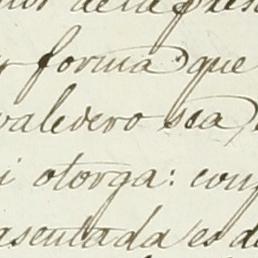 forma que
valedero sea
otorga: con
asentada es de